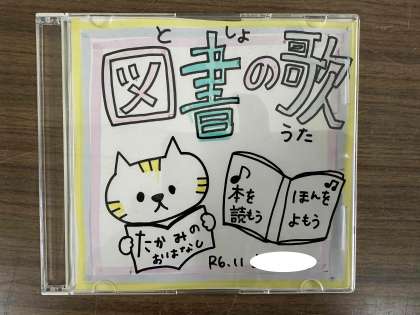 としょ
図書の歌
うた
たかみの
おはなし
本を
読もう
ほんを
よもう
R6.11